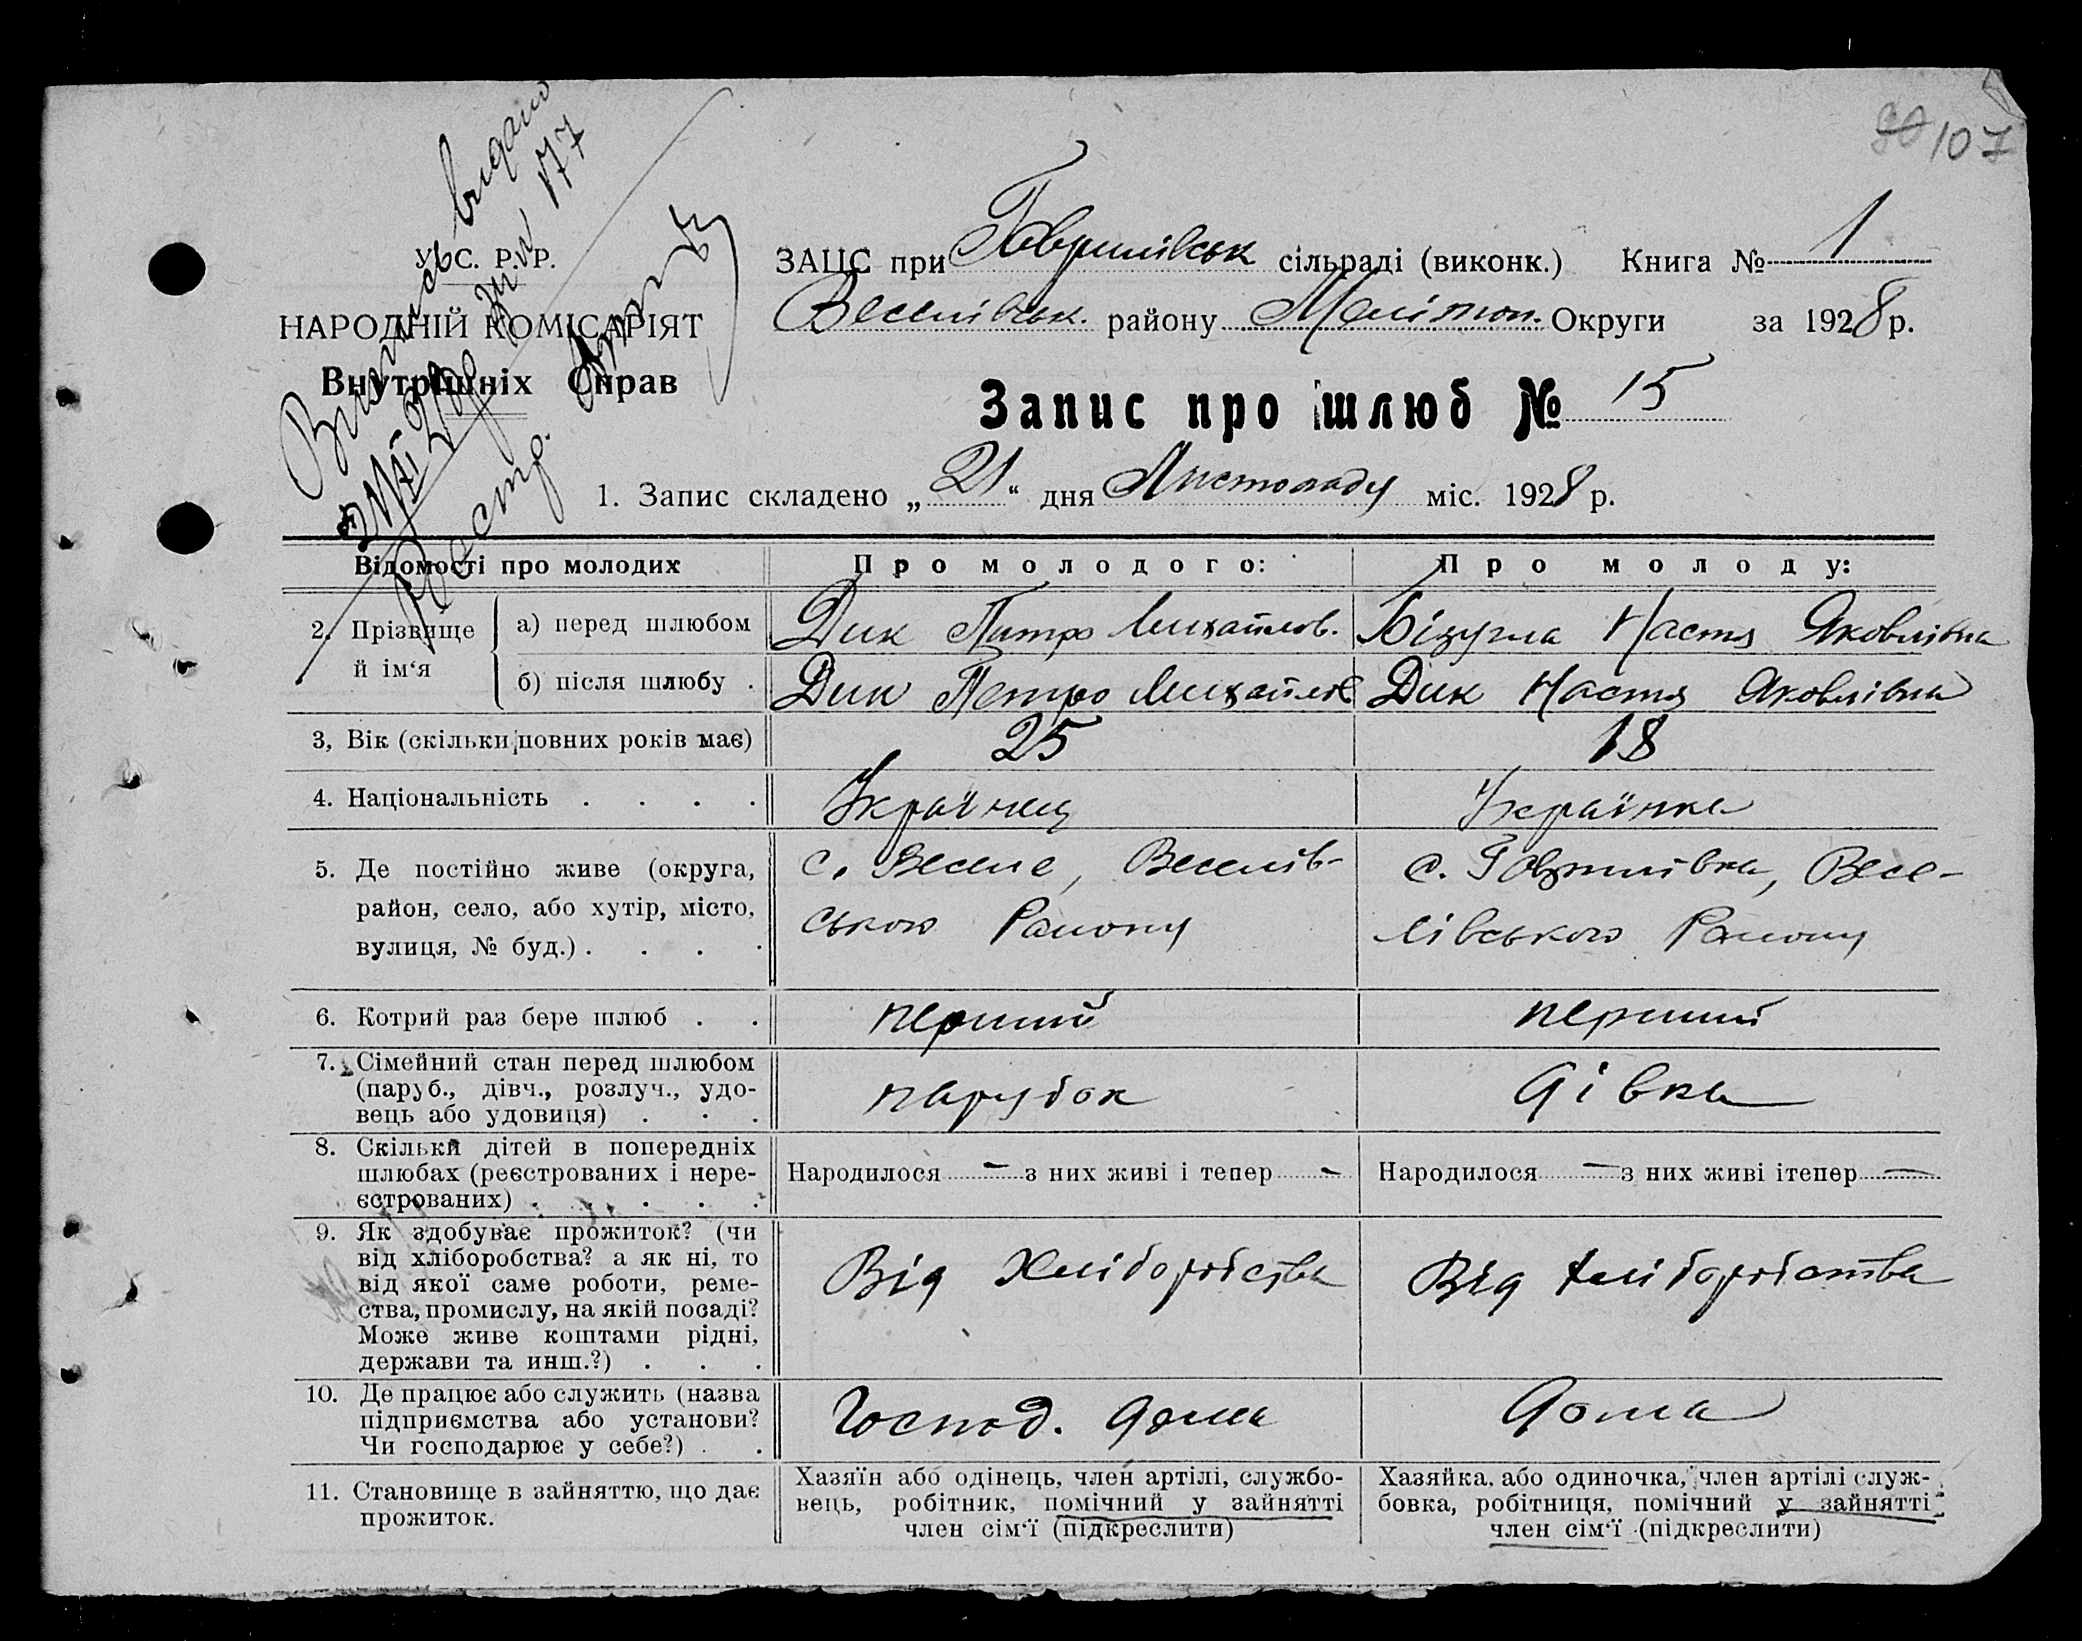 107
Виписка видано
У. С. Р. Р.
НАРОДНІЙ КОМІСАРІЯТ
Внутрішніх Справ
ЗАЦС при Гаврилівськ сільраді (виконк.) Книга № 1
Веселівськ. району Меліто́п. Округи за 1928 р.
Запис про шлюб № 15
1. Запис складено „21“ дня Листопаду міс. 1928 р.
Відомості про молодих Про молодого: Про молоду:
2. Прізвище й ім‘я
а) перед шлюбом Дик Питро Михайлов. Бізугла Настя Яковлівна
б) після шлюбу . Дик Петро Михайлов Дик Настя Яковлівна
3, Вік (скільки повних років має) 25 18
4. Національність . . . . Українец Українка
5. Де постійно живе (округа,
район, село, або хутір, місто,
вулиця, № буд.) . . . .
с. Веселе, Веселів-
ського Району
с. Гаврилівка, Весе-
лівського Району
6. Котрий раз бере шлюб . . перший перший
7. Сімейний стан перед шлюбом
(паруб., дівч., розлуч., удо-
вець або удовиця) . . .
парубок дівка
8. Скільки дітей в попередніх
шлюбах (реєстрованих і нере-
єстрованих) . . . . .
Народилося — з них живі і тепер - Народилося — з них живі ітепер —
9. Як здобуває прожиток? (чи
від хліборобства? а як ні, то
від якої саме роботи, реме-
ства, промислу, на якій посаді?
Може живе коштами рідні,
держави та инш.?) . . .
Від Хліборобства Від хліборобства
10. Де працює або служить (назва
підприємства або установи?
Чи господарює у себе?) . .
Господ. дома дома
11. Становище в зайняттю, що дає
прожиток.
Хазяїн або одінець, член артілі, службо-
вець, робітник, помічний у зайнятті
член сім‘ї (підкреслити)
Хазяйка, або одиночка, член артілі служ-
бовка, робітниця, помічний у зайнятті
член сім‘ї (підкреслити)